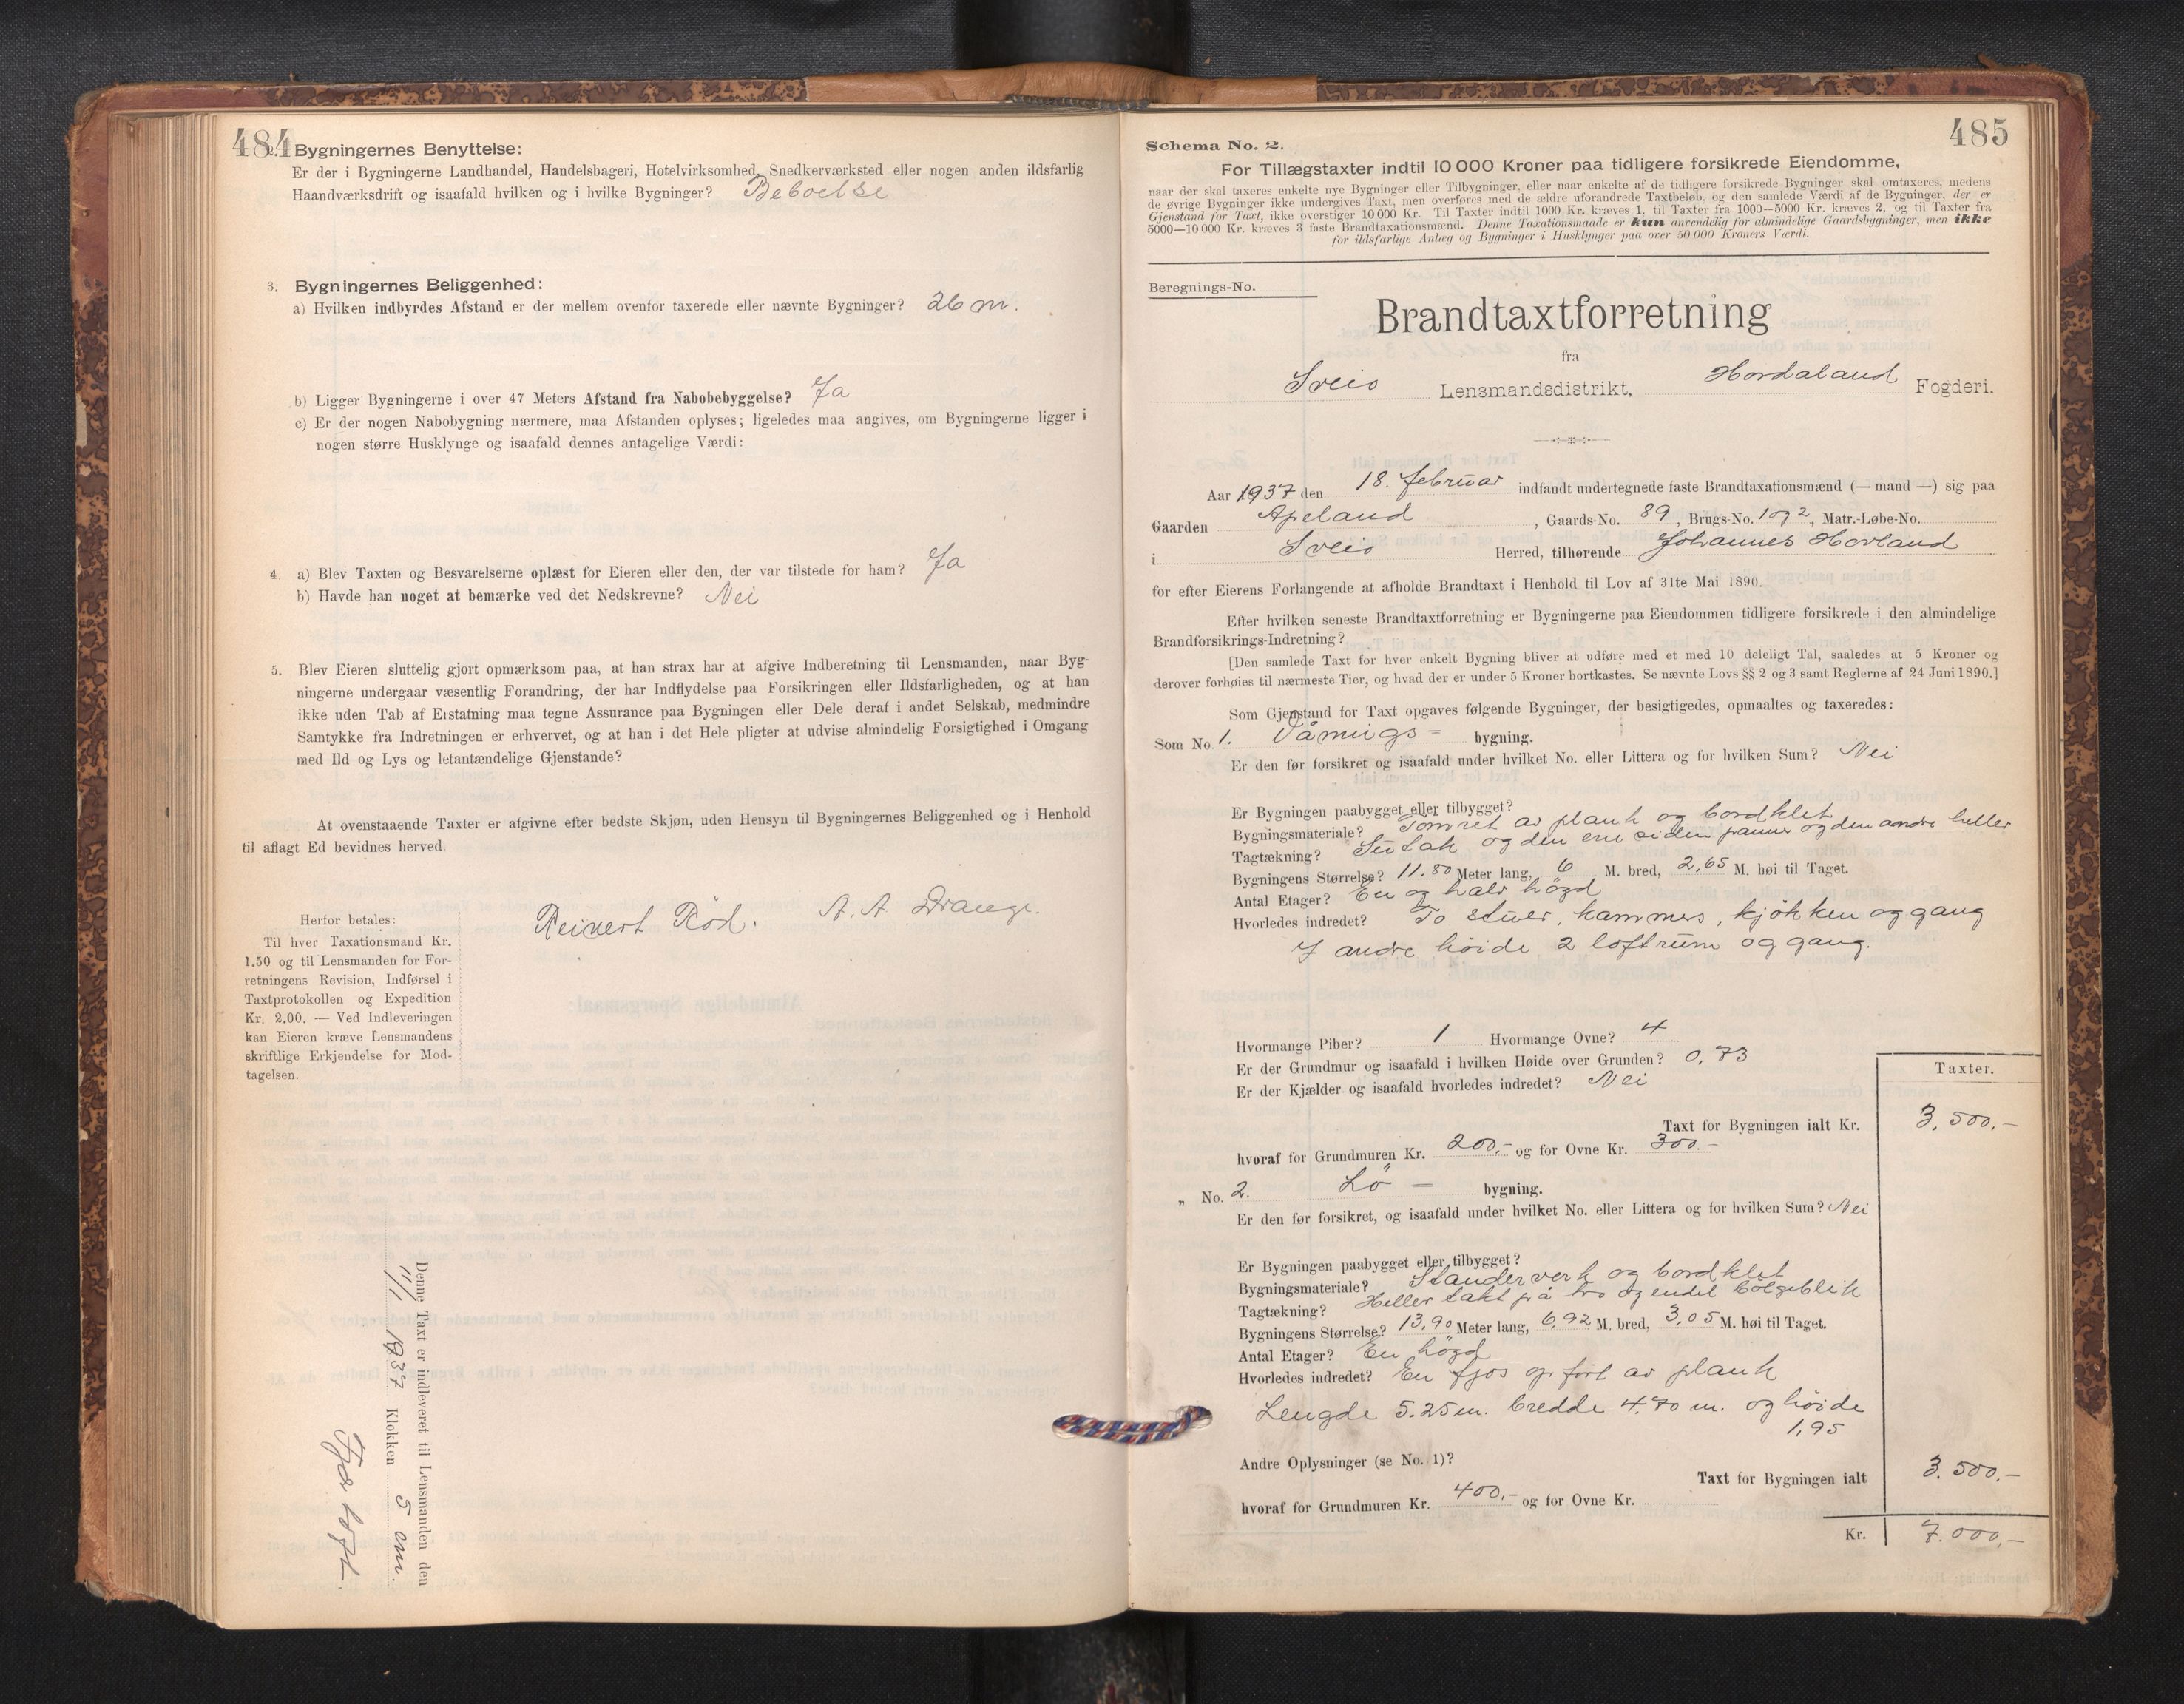 484
2. Bygningernes Benyttelse:
Er der i Bygningerne Landhandel, Handelsbageri, Hotelvirksomhed, Snedkerværksted eller nogen anden ildsfarlig
Haandværksdrift og isaafald hvilken og i hvilke Bygninger? Beboelse
3. Bygningernes Beliggenhed:
a) Hvilken indbyrdes Afstand er der mellem ovenfor taxerede eller nævnte Bygninger? 26 m.
b) Ligger Bygningerne i over 47 Meters Afstand fra Nabobebyggelse? Ja
c) Er der nogen Nabobygning nærmere, maa Afstanden oplyses; ligeledes maa angives, om Bygningerne ligger i
nogen større Husklynge og isaafald dennes antagelige Værdi:
4. a) Blev Taxten og Besvarelserne oplæst for Eieren eller den, der var tilstede for ham? Ja
b) Havde han noget at bemærke ved det Nedskrevne? Nei
5. Blev Eieren sluttelig gjort opmærksom paa, at han strax har at afgive Indberetning til Lensmanden, naar Byg-
ningerne undergaar væsentlig Forandring, der har Indflydelse paa Forsikringen eller Ildsfarligheden, og at han
ikke uden Tab af Erstatning maa tegne Assurance paa Bygningen eller Dele deraf i andet Selskab, medmindre
Samtykke fra Indretningen er erhvervet, og at han i det Hele pligter at udvise almindelig Forsigtighed i Omgang
med Ild og Lys og letantændelige Gjenstande?
At ovenstaaende Taxter er afgivne efter bedste Skjøn, uden Hensyn til Bygningernes Beliggenhed og i Henhold
til aflagt Ed bevidnes herved.
Reinert Röd. A. A Drange.
Herfor betales:
Til hver Taxationsmand Kr.
1.50 og til Lensmanden for For-
retningens Revision, Indførsel i
Taxtprotokollen og Expedition
Kr. 2,00. — Ved Indleveringen
kan Eieren kræve Lensmandens
skriftlige Erkjendelse for Mod-
tagelsen.
Denne Taxt er indleveret til Lensmanden den
11/1 1937 Klokken 5 em.
485
Schema No. 2.
For Tillægstaxter indtil 10 000 Kroner paa tidligere forsikrede Eiendomme,
naar der skal taxeres enkelte nye Bygninger eller Tilbygninger, eller naar enkelte af de tidligere forsikrede Bygninger skal omtaxeres, medens
de øvrige Bygninger ikke undergives Taxt, men overføres med de ældre uforandrede Taxtbeløb, og den samlede Værdi af de Bygninger, der er
Gjenstand for Taxt, ikke overstiger 10 000 Kr. Til Taxter indtil 1000 Kr. kræves 1, til Taxter fra 1000—5000 Kr. kræves 2, og til Taxter fra
5000—10 000 Kr. kræves 3 faste Brandtaxationsmænd. Denne Taxationsmaade er kun anvendelig for almindelige Gaardsbygninger, men ikke
for ildsfarlige Anlæg og Bygninger i Husklynger paa over 50 000 Kroners Værdi.
Beregnings-No.
Brandtaxtforretning
fra
Sveio Lensmandsdistrikt, Hordaland Fogderi.
Aar 1937 den 18. februar indfandt undertegnede faste Brandtaxationsmænd (— mand —) sig paa
Gaarden Apeland, Gaards-No. 89, Brugs-No. 1 og 2, Matr.-Løbe-No.
i Sveio Herred, tilhørende Johannes Hovland
for efter Eierens Forlangende at afholde Brandtaxt i Henhold til Lov af 31te Mai 1890.
Efter hvilken seneste Brandtaxtforretning er Bygningerne paa Eiendommen tidligere forsikrede i den almindelige
Brandforsikrings-Indretning?
[Den samlede Taxt for hver enkelt Bygning bliver at udføre med et med 10 deleligt Tal, saaledes at 5 Kroner og
derover forhøies til nærmeste Tier, og hvad der er under 5 Kroner bortkastes. Se nævnte Lovs §§ 2 og 3 samt Reglerne af 24 Juni 1890.]
Som Gjenstand for Taxt opgaves følgende Bygninger, der besigtigedes, opmaaltes og taxeredes:
Som No. 1. Vånings- bygning.
Er den før forsikret og isaafald under hvilket No. eller Littera og for hvilken Sum? Nei
Er Bygningen paabygget eller tilbygget?
Bygningsmateriale? Tömret av plank og bordklet
Tagtækning? Sutak og den ene siden panner og den andre heller
Bygningens Størrelse? 11.80 Meter lang, 6 M. bred, 2,65 M. høi til Taget.
Antal Etager? En og halv högd
Hvorledes indredet? To stuer, kammers, kjökken og gang
I andre höide 2 loftrum og gang.
Hvormange Piber? 1 Hvormange Ovne? 4
Er der Grundmur og isaafald i hvilken Høide over Grunden? 0,73
Er der Kjælder og isaafald hvorledes indredet? Nei
Taxter.
Taxt for Bygningen ialt Kr. 3,500.-
hvoraf for Grundmuren Kr. 200.- og for Ovne Kr. 300.-
„ No. 2. Lö - bygning.
Er den før forsikret, og isaafald under hvilket No. eller Littera og for hvilken Sum? Nei
Er Bygningen paabygget eller tilbygget?
Bygningsmateriale? Standerverk og bordklet
Tagtækning? Heller takt på tro og endel bölgeblik
Bygningens Størrelse? 13,90 Meter lang, 6,92 M. bred, 3,05 M. høi til Taget.
Antal Etager? En högd
Hvorledes indredet? En fjos opfört av plank
Lengde 5.25 m. bredde 4.70 m. og höide
1,95
Andre Oplysninger (se No. 1)?
Taxt for Bygningen ialt 3.500.-
hvoraf for Grundmuren Kr. 400.- og for Ovne Kr.
Kr. 7.000,-